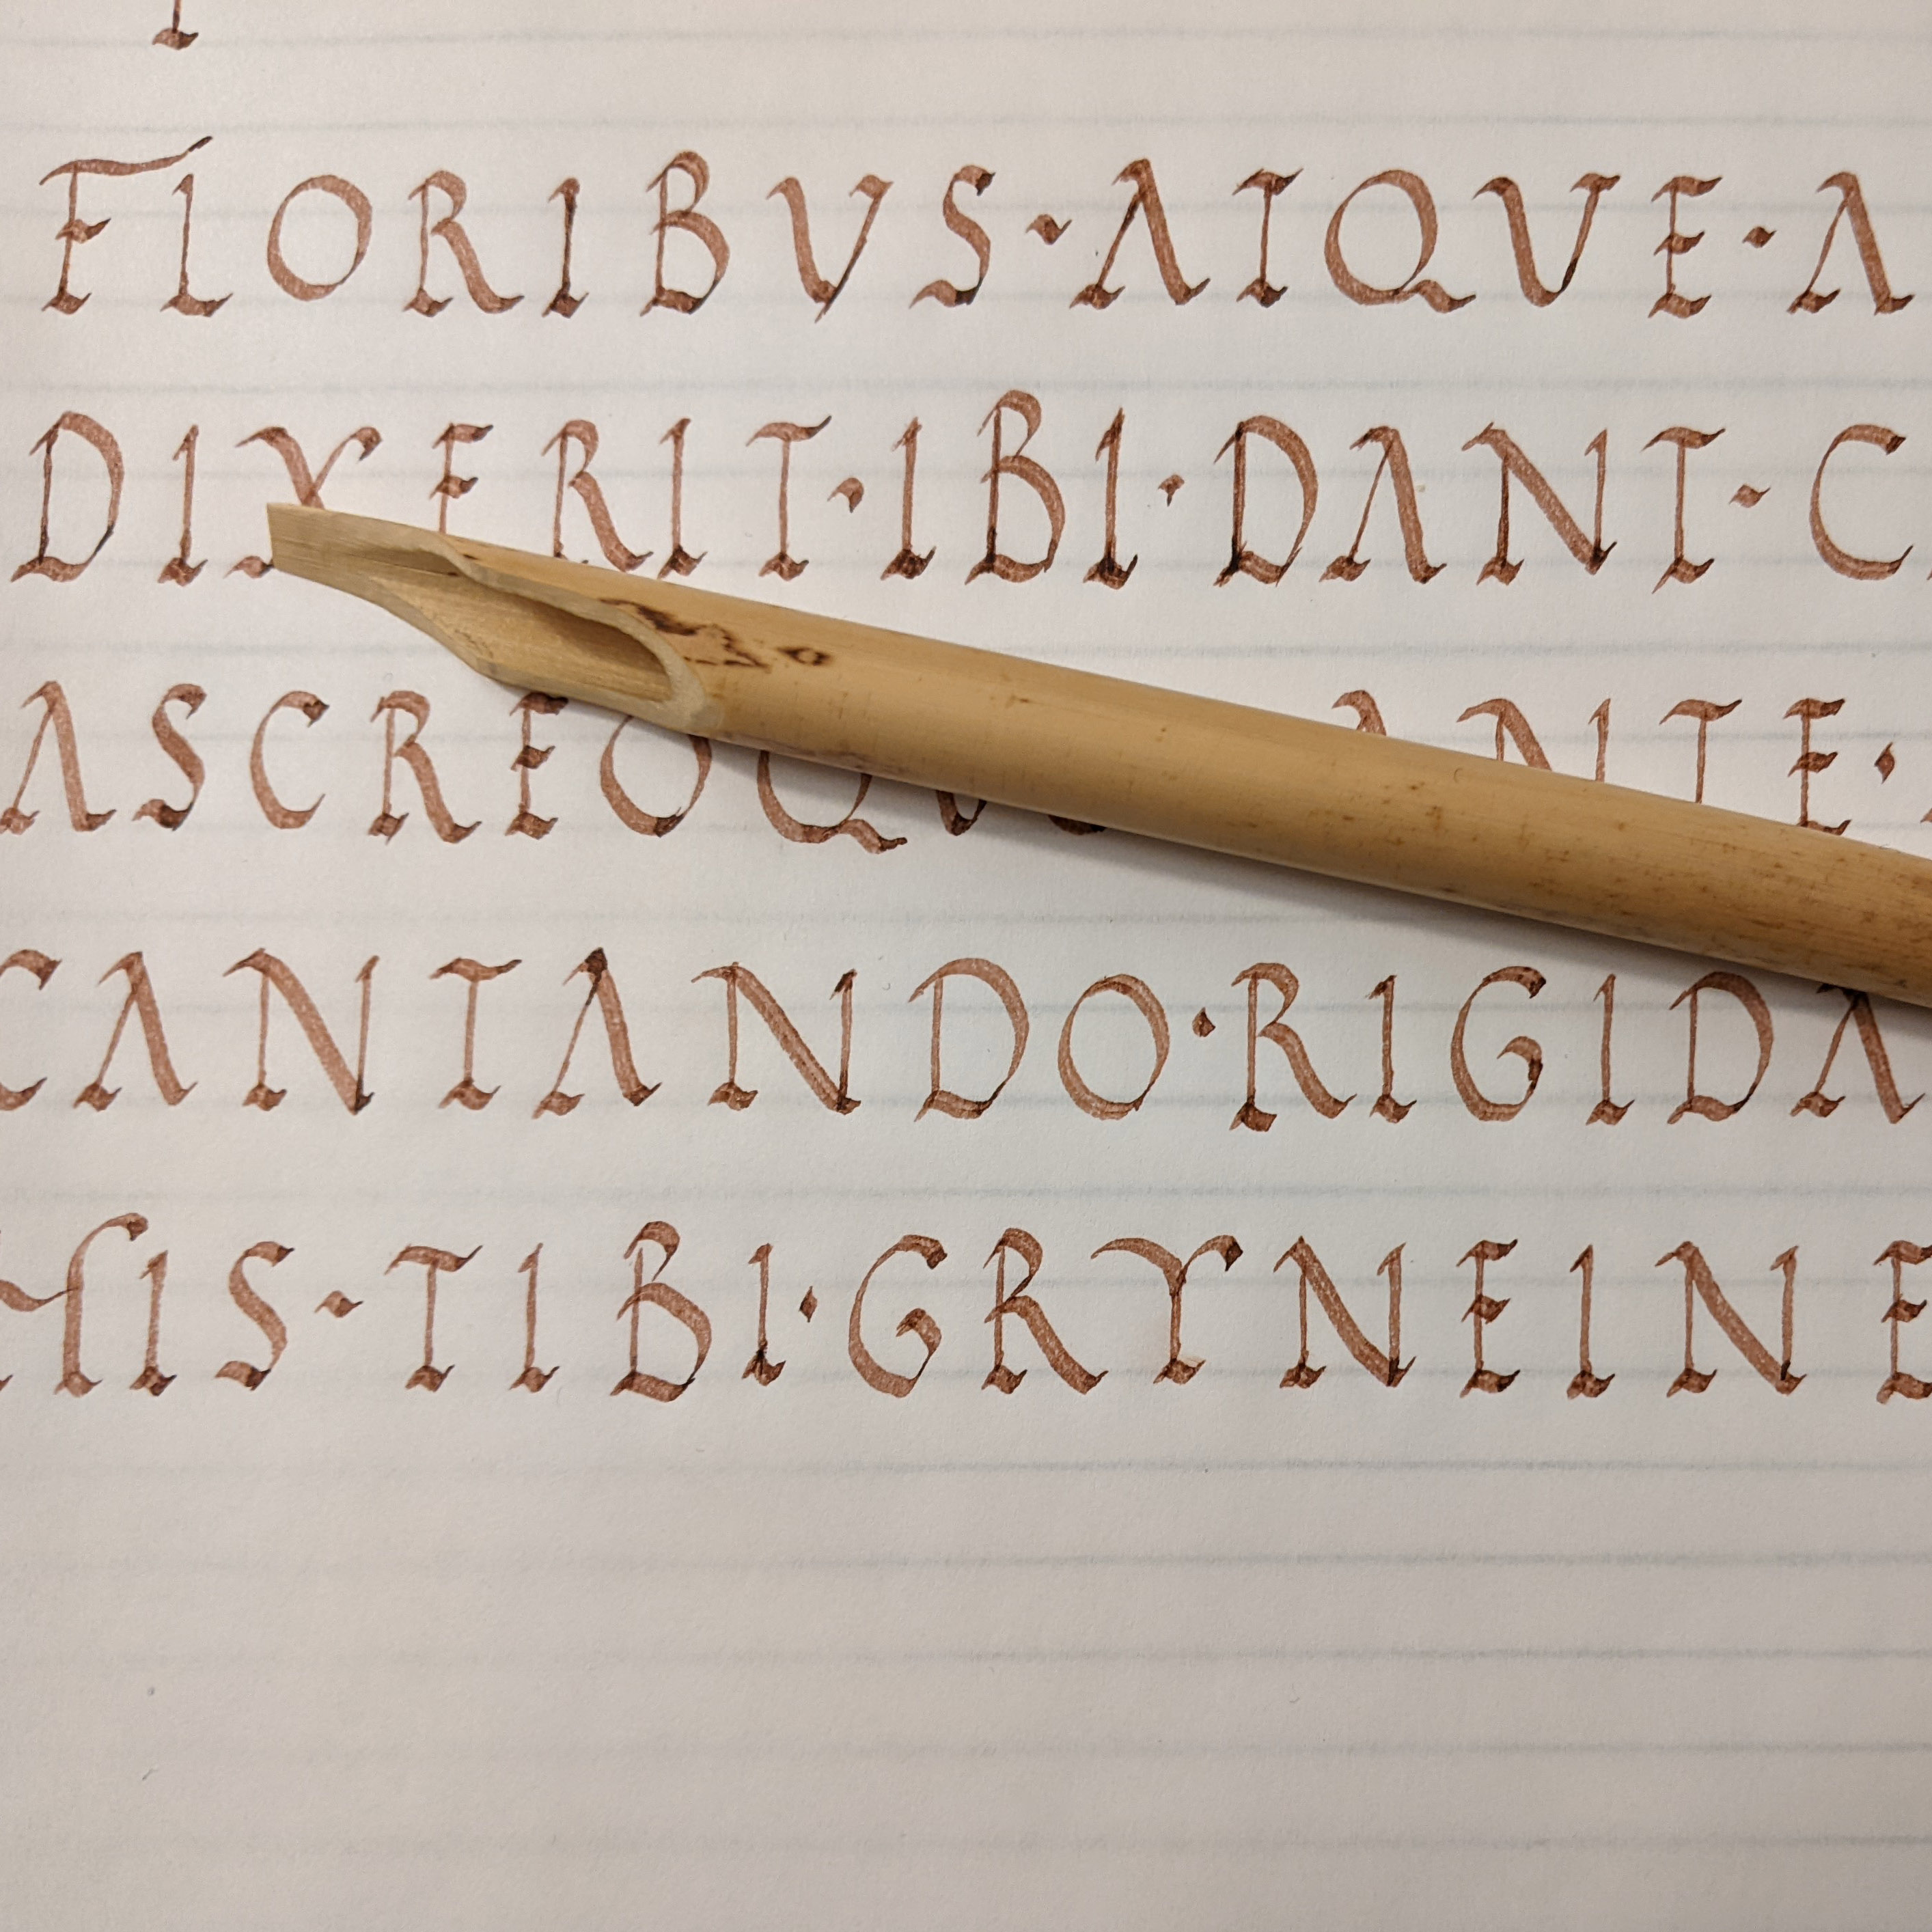 FLORIBVS·ATQVE·A
DIXERIT·IBI·DANT·C
ASCREOQVO ANTE·
CANTANDO·RIGIDA
HIS·TIBI·GRYNEINE